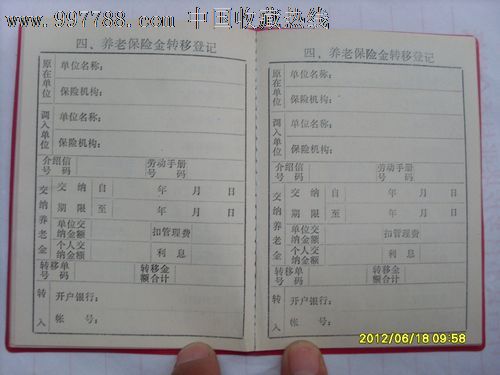 www.997788.com 中国收藏热线
四、养老保险金转移登记
原在单位
单位名称：
保险机构：
调入单位
单位名称：
保险机构：
介绍信号码
劳动手册号码
交纳养老金
交纳自 年 月 日
期限至 年 月 日
单位交纳金额
扣管理费
个人交纳金额
利息
转移单号码
转移金额合计
转入
开户银行：
帐号：
四、养老保险金转移登记
原在单位
单位名称：
保险机构：
调入单位
单位名称：
保险机构：
介绍信号码
劳动手册号码
交纳养老金
交纳自 年 月 日
期限至 年 月 日
单位交纳金额
扣管理费
个人交纳金额
利息
转移单号码
转移金额合计
转入
开户银行：
帐号：
2012/06/18 09:58